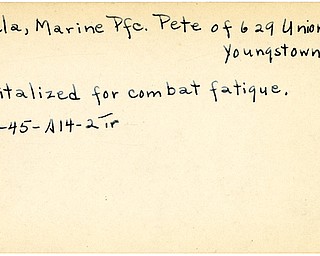 la, Marine Pfc. Pete of 629 Union
Youngstown
italized for combat fatigue.
-45-A14-2 Tr